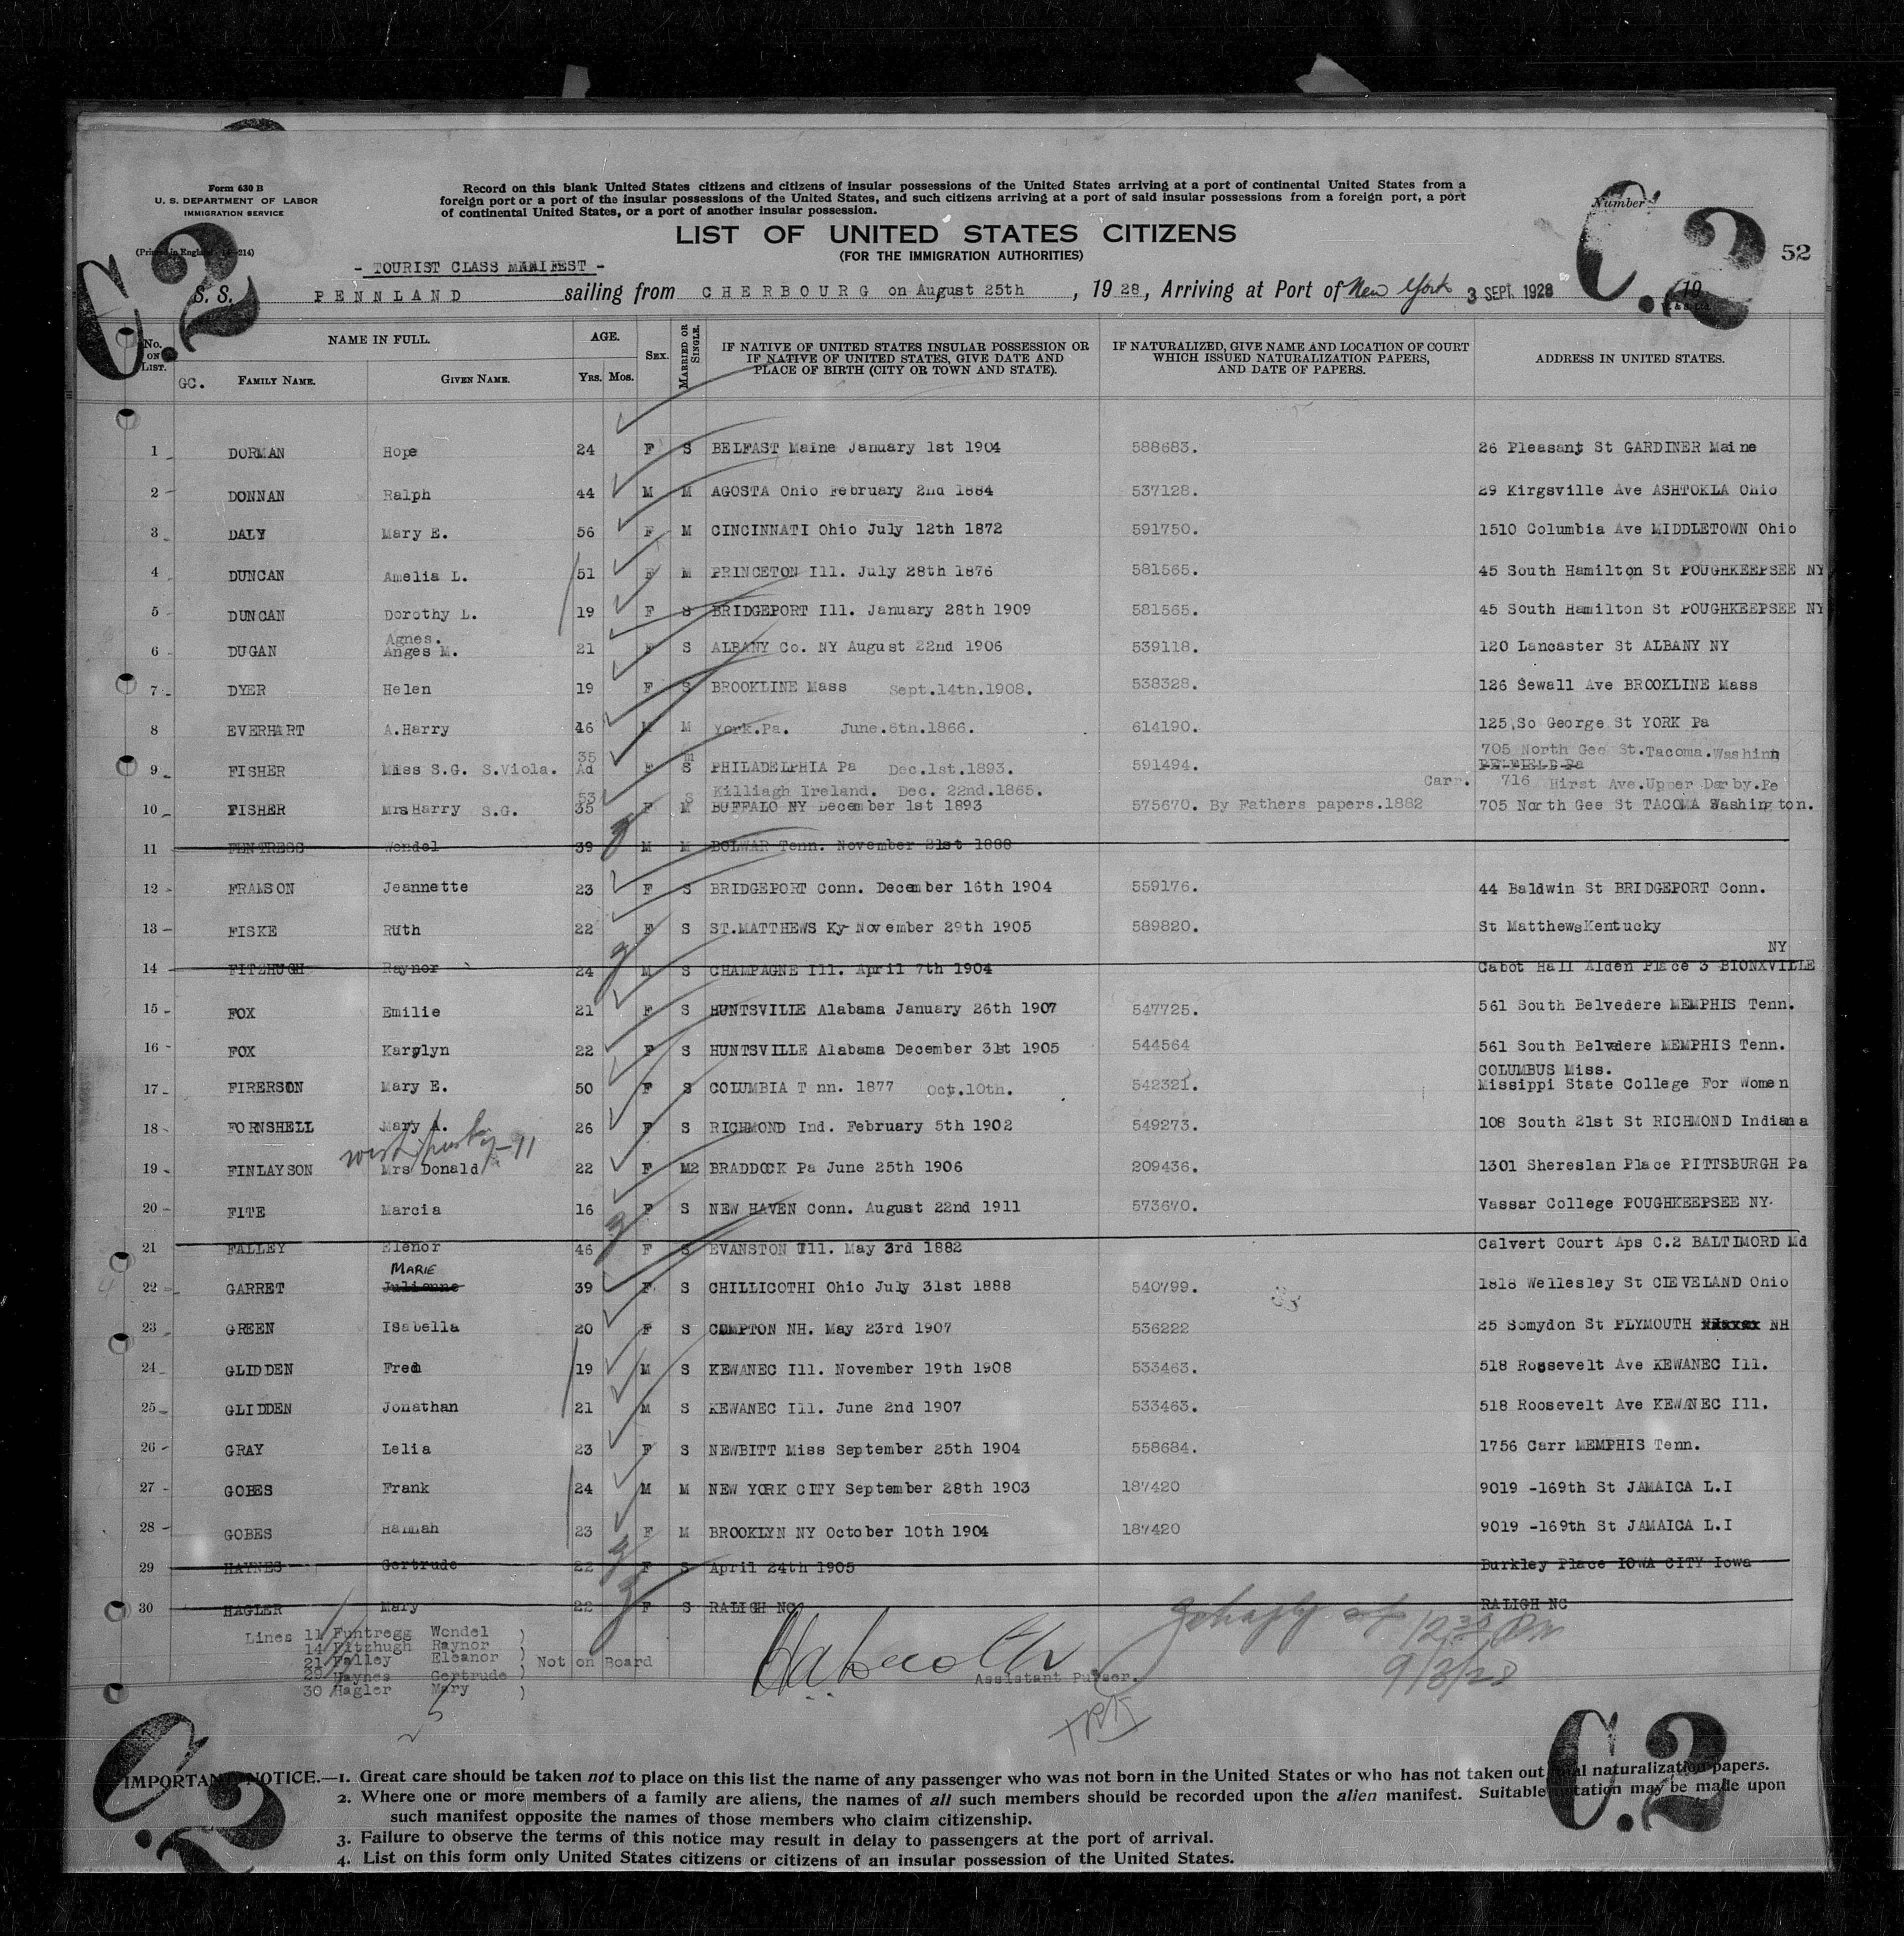 Form 630 B
U. S. DEPARTMENT OF LABOR
IMMIGRATION SERVICE
(Printed in England 14-214)
Record on this blank United States citizens and citizens of insular possessions of the United States arriving at a port of continental United States from a
foreign port or a port of the insular possessions of the United States, and such citizens arriving at a port of said insular possessions from a foreign port, a port
of continental United States, or a port of another insular possession.
Number
C.2
C.2
52
LIST OF UNITED STATES CITIZENS
(FOR THE IMMIGRATION AUTHORITIES)
- TOURIST CLASS MANIFEST -
S. S. PENNLAND sailing from CHERBOURG on August 25th, 1928, Arriving at Port of New York 3 SEPT. 1928, 19
No. ON LIST. NAME IN FULL. AGE. SEX. MARRIED OR SINGLE. IF NATIVE OF UNITED STATES INSULAR POSSESSION OR IF NATIVE OF UNITED STATES, GIVE DATE AND PLACE OF BIRTH (CITY OR TOWN AND STATE). IF NATURALIZED, GIVE NAME AND LOCATION OF COURT WHICH ISSUED NATURALIZATION PAPERS, AND DATE OF PAPERS. ADDRESS IN UNITED STATES.
GC. FAMILY NAME. GIVEN NAME. YRS. MOS.
1 DORMAN Hope 24 F S BELFAST Maine January 1st 1904 588683. 26 Pleasant St GARDINER Maine
2 DONNAN Ralph 44 M M AGOSTA Ohio February 2nd 1884 537128. 29 Kirgsville Ave ASHTOKLA Ohio
3 DALY Mary E. 56 F M CINCINNATI Ohio July 12th 1872 591750. 1510 Columbia Ave MIDDLETOWN Ohio
4 DUNCAN Amelia L. 51 F M PRINCETON Ill. July 28th 1876 581565. 45 South Hamilton St POUGHKEEPSEE NY
5 DUNCAN Dorothy L. 19 F S BRIDGEPORT Ill. January 28th 1909 581565. 45 South Hamilton St POUGHKEEPSEE NY
Agnes.
6 DUGAN Anges M. 21 F S ALBANY Co. NY August 22nd 1906 539118. 120 Lancaster St ALBANY NY
7 DYER Helen 19 F S BROOKLINE Mass Sept.14th.1908. 538328. 126 Sewall Ave BROOKLINE Mass
8 EVERHART A.Harry 46 M M York.Pa. June.6th.1866. 614190. 125 So George St YORK Pa
35 m 705 North Gee St.Tacoma.Washinn
9 FISHER Miss S.G. S.Viola. Ad F S PHILADELPHIA Pa Dec.1st.1893. 591494. PENFIELD Pa
53 S Killiagh Ireland. Dec. 22nd.1865. Carr. 716 Hirst Ave.Upper Darby.Pe
10 FISHER Mrs Harry S.G. 35 F M BUFFALO NY December 1st 1893 575670. By Fathers papers.1882 705 North Gee St TACOMA Washington.
11 FENTRESS Wendel 39 M M BOLWAR Tenn. November 21st 1888
12 FRALSON Jeannette 23 F S BRIDGEPORT Conn. December 16th 1904 559176. 44 Baldwin St BRIDGEPORT Conn.
13 FISKE Ruth 22 F S ST.MATTHEWS Ky November 29th 1905 589820. St MatthewsKentucky
NY
14 FITZHUGH Raynor 24 M S CHAMPAGNE Ill. April 7th 1904 Cabot Hall Alden Place 3 BIONXVILLE
15 FOX Emilie 21 F S HUNTSVILLE Alabama January 26th 1907 547725. 561 South Belvedere MEMPHIS Tenn.
16 FOX Karolyn 22 F S HUNTSVILLE Alabama December 31st 1905 544564 561 South Belvedere MEMPHIS Tenn.
COLUMBUS Miss.
17 FIRERSON Mary E. 50 F S COLUMBIA T nn. 1877 Oct.10th. 542321. Missippi State College For Women
18 FORNSHELL Mary A. 26 F S RICHMOND Ind. February 5th 1902 549273. 108 South 21st St RICHMOND Indiana
19 FINLAYSON Mrs Donald 22 F M2 BRADDOCK Pa June 25th 1906 209436. 1301 Shereslan Place PITTSBURGH Pa
20 FITE Marcia 16 F S NEW HAVEN Conn. August 22nd 1911 573670. Vassar College POUGHKEEPSEE NY.
21 FALLEY Elenor 46 F S EVANSTON Ill. May 3rd 1882 Calvert Court Aps C.2 BALTIMORD Md
MARIE
22 GARRET Julienne 39 F S CHILLICOTHI Ohio July 31st 1888 540799. 1818 Wellesley St CLEVELAND Ohio
23 GREEN ISabella 20 F S COMPTON NH. May 23rd 1907 536222 25 Somydon St PLYMOUTH NH
24 GLIDDEN Fred 19 M S KEWANEC Ill. November 19th 1908 533463. 518 Roosevelt Ave KEWANEC Ill.
25 GLIDDEN Jonathan 21 M S KEWANEC Ill. June 2nd 1907 533463. 518 Roosevelt Ave KEWANEC Ill.
26 GRAY Lelia 23 F S NEWBITT Miss September 25th 1904 558684. 1756 Carr MEMPHIS Tenn.
27 GOBES Frank 24 M M NEW YORK CITY September 28th 1903 187420 9019 -169th St JAMAICA L.I
28 GOBES Hannah 23 F M BROOKLYN NY October 10th 1904 187420 9019 -169th St JAMAICA L.I
29 HAYNES Gertrude 22 F S April 24th 1905 Burkley Place IOWA CITY Iowa
30 HAGLER Mary 22 F S RALIGH NC RALIGH NC
Lines 11 Funtregg Wendel )
14 Fitzhugh Raynor )
21 Falley Eleanor ) Not on Board
29 Haynes Gertrude )
30 Hagler Mary )
Assistant Purser.
12 30 Pm
9/3/28
25
C.2
C.2
IMPORTANT NOTICE.—1. Great care should be taken not to place on this list the name of any passenger who was not born in the United States or who has not taken out final naturalization papers.
2. Where one or more members of a family are aliens, the names of all such members should be recorded upon the alien manifest. Suitable notation may be made upon
such manifest opposite the names of those members who claim citizenship.
3. Failure to observe the terms of this notice may result in delay to passengers at the port of arrival.
4. List on this form only United States citizens or citizens of an insular possession of the United States.